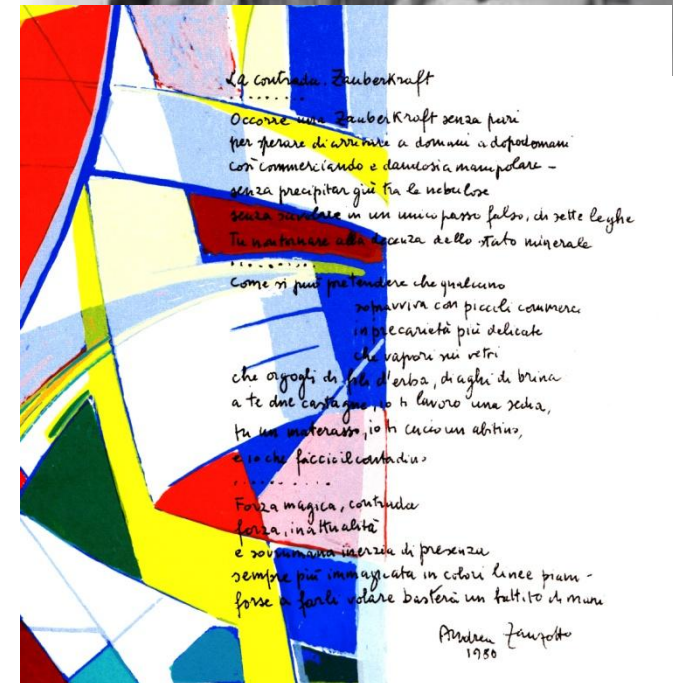 La contrada. Zauberkraft
. . . . . . . .
Occorre una ZauberKraft senza pari
per sperare di arrivare a domani a dopodomani
così commerciando e dandosi a manipolare –
senza precipitar giù tra le nebulose
senza scivolare in un unico passo falso, di sette leghe
Tu non tornare alla decenza dello stato minerale
. . . . . . . . .
Come si può pretendere che qualcuno
sopravviva con piccoli commerci
in precarietà più delicate
che vapori sui vetri
che orgogli di fili d'erba, di aghi di brina
a te due castagne, io ti lavoro una sedia,
tu un materasso, io ti cucio un abitino,
e io che faccio il contadino
. . . . . . . . .
Forza magica, contrada
forza, inattualità
e sovrumana inerzia di presenza
sempre più immagicata in colori linee piani –
forse a farli volare basterà un battito di mani
Andrea Zanzotto
1980